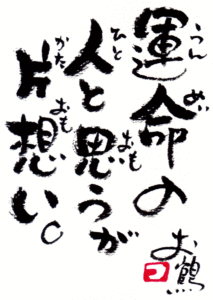 運命の
人と思うが
片想い。
お鶴
うん
めい
ひと
おも
かた
おも